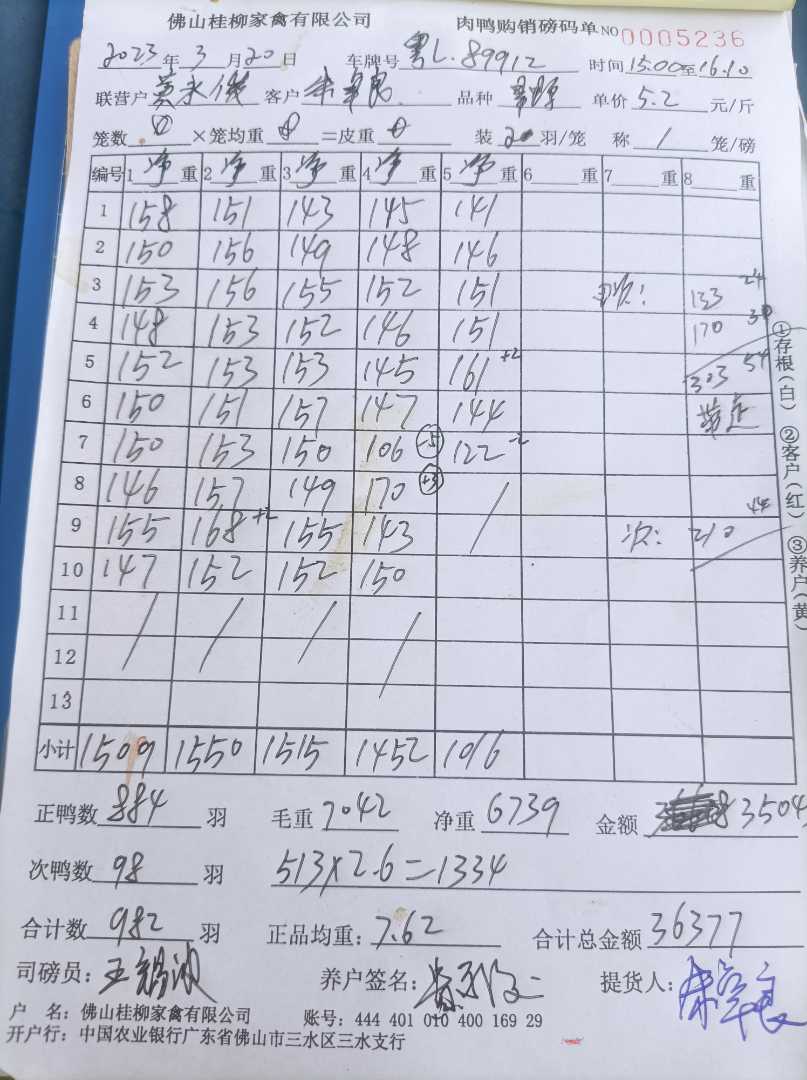 佛山桂柳家禽有限公司 肉鸭购销磅码单 NO 0005236
2023年3月20日 车牌号 粤L.89912 时间 15.00至16.10
联营户 客户 品种 单价 5.2 元/斤
笼数 0 ×笼均重 0 =皮重 0 装 20 羽/笼 称 1 笼/磅
编号 1 净 重 2 净 重 3 净 重 4 净 重 5 净 重 6 重 7 重 8 重
1 158 151 143 145 141
2 150 156 149 148 146
3 153 156 155 152 151 133 24
4 148 153 152 146 151 170 30
5 152 153 153 145 161 +2 303 54
6 150 151 157 147 144
7 150 153 150 106 -5 122 -2
8 146 157 149 170 +3 /
9 155 168 +2 155 143 次: 210 44
10 147 152 152 150
11 / / / /
12
13
小计 1509 1550 1515 1452 1016
正鸭数 884 羽 毛重 7042 净重 6739 金额 3504
次鸭数 98 羽 513×2.6=1334
合计数 982 羽 正品均重: 7.62 合计总金额 36377
司磅员: 养户签名: 提货人:
户 名: 佛山桂柳家禽有限公司 账号: 444 401 010 400 169 29
开户行: 中国农业银行广东省佛山市三水区三水支行
①存根(白) ②客户(红) ③养户(黄)